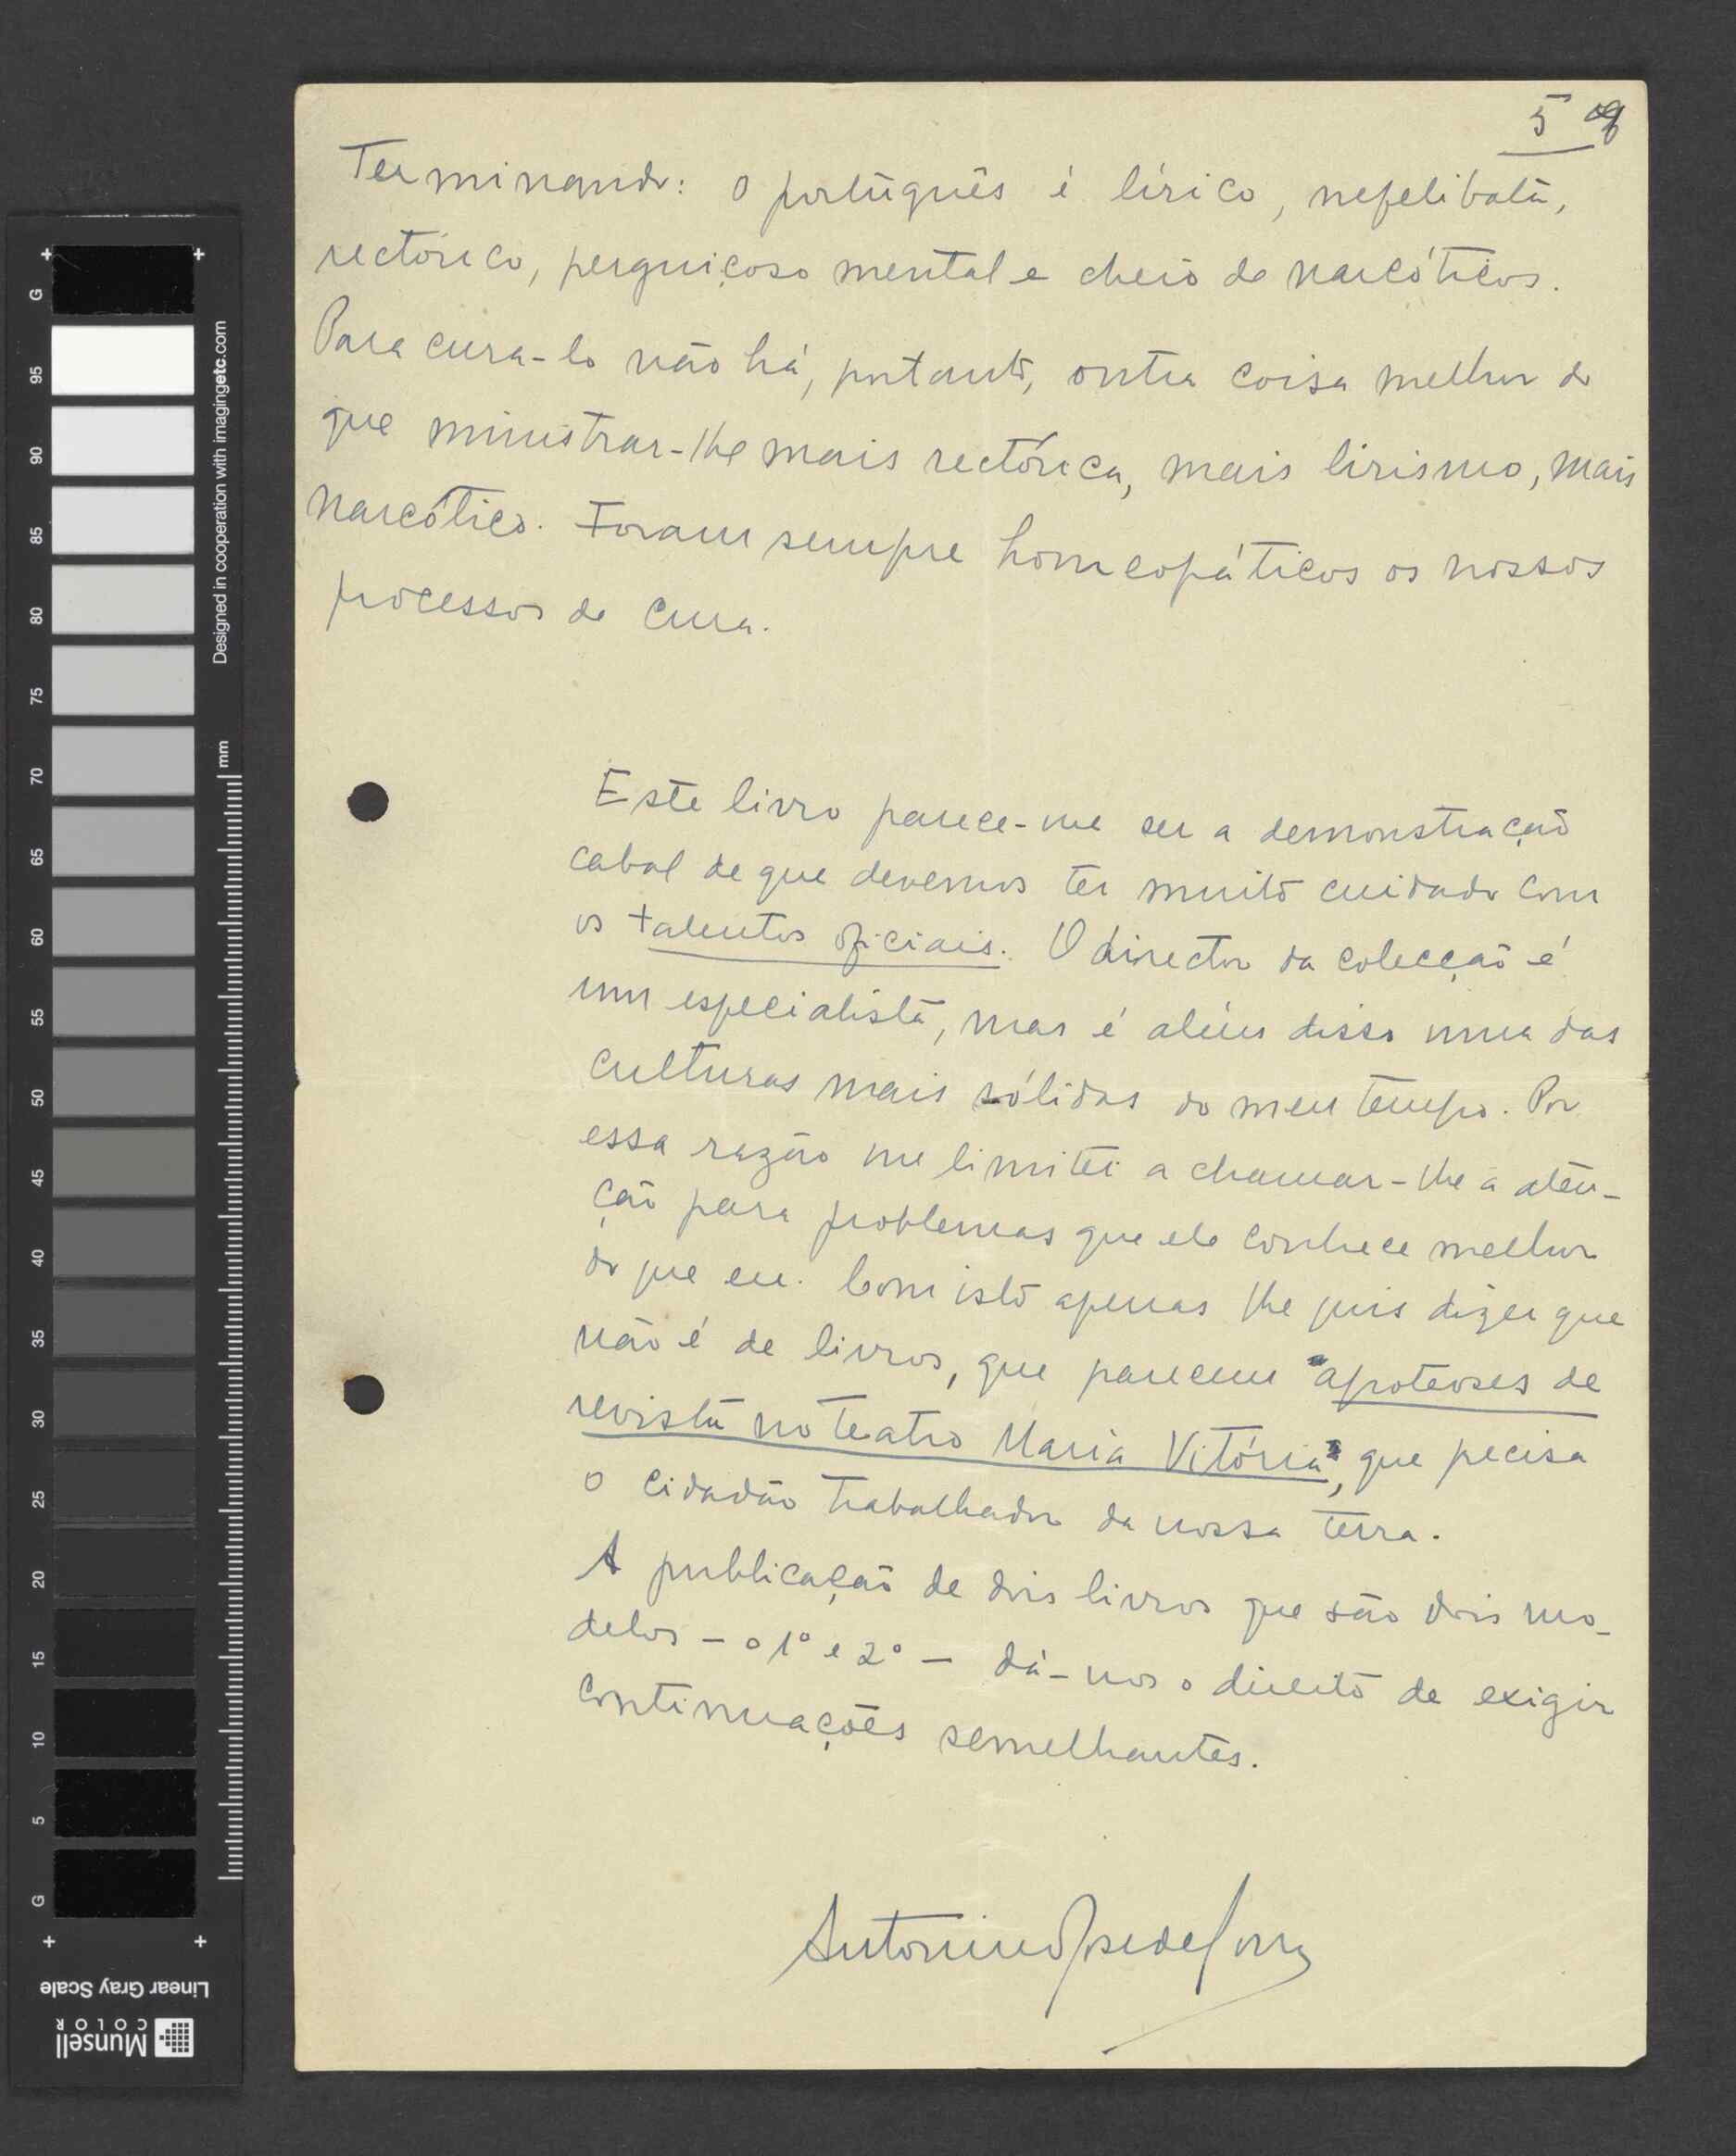 5
Terminando: o português é lírico, nefelibata,
rectórico, perguiçoso mental e cheio de narcóticos.
Para cura-lo não há, portanto, outra coisa melhor do
que ministrar-lhe mais rectórica, mais lirismo, mais
narcótico. Foram sempre homeopáticos os nossos
processos de cura.
Este livro parece-me ser a demonstração
cabal de que devemos ter muito cuidado com
os talentos oficiais. O director da colecção é
um especialista, mas é além disso uma das
culturas mais sólidas do meu tempo. Por
essa razão me limitei a chamar-lhe a aten-
ção para problemas que ele conhece melhor
do que eu. Com isto apenas lhe quis dizer que
não é de livros, que parecem "apoteoses de
revista no teatro Maria Vitória", que precisa
o cidadão trabalhador da nossa terra.
A publicação de dois livros que são dois mo-
delos - o 1º e 2º - dá-nos o direito de exigir
continuações semelhantes.
Antonino de Sousa
Designed in cooperation with imagingetc.com
mm
G
95
90
85
80
75
70
65
60
55
50
45
40
35
30
25
20
15
10
5
G
Linear Gray Scale
Munsell
COLOR